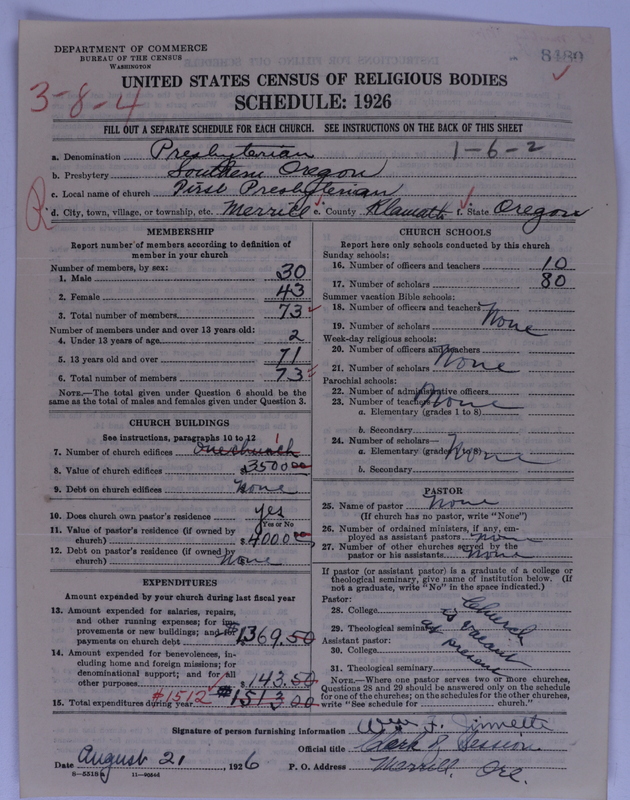 DEPARTMENT OF COMMERCE
BUREAU OF THE CENSUS
WASHINGTON
8180
UNITED STATES CENSUS OF RELIGIOUS BODIES
3-8-4
SCHEDULE: 1926
FILL OUT A SEPARATE SCHEDULE FOR EACH CHURCH. SEE INSTRUCTIONS ON THE BACK OF THIS SHEET
1-6-2
a. Denomination Presbyterian
b. Presbytery Southern Oregon
c. Local name of church First Presbyterian
d. City, town, village, or township, etc. Merrill e. County Klamath f. State Oregon
MEMBERSHIP
Report number of members according to definition of
member in your church
Number of members, by sex:
1. Male 30
2. Female 43
3. Total number of members 73
Number of members under and over 13 years old:
4. Under 13 years of age 2
5. 13 years old and over 71
6. Total number of members 73
NOTE.—The total given under Question 6 should be
same as the total of males and females given under Question 3.
CHURCH BUILDINGS
See instructions, paragraphs 10 to 12
7. Number of church edifices One church 1
8. Value of church edifices $3500 00
9. Debt on church edifices None
10. Does church own pastor's residence yes
Yes or No
11. Value of pastor's residence (if owned by
church) $4000 00
12. Debt on pastor's residence (if owned by
church) None
EXPENDITURES
Amount expended by your church during last fiscal year
13. Amount expended for salaries, repairs,
and other running expenses; for im-
provements or new buildings; and for
payments on church debt $1369.50
14. Amount expended for benevolences, in-
cluding home and foreign missions; for
denominational support; and for all
other purposes $143.50
$1512
15. Total expenditures during year $1513 00
CHURCH SCHOOLS
Report here only schools conducted by this church
Sunday schools:
16. Number of officers and teachers 10
17. Number of scholars 80
Summer vacation Bible schools:
18. Number of officers and teachers
None
19. Number of scholars
Week-day religious schools:
20. Number of officers and teachers
None
21. Number of scholars
Parochial schools:
22. Number of administrative officers
23. Number of teachers— None
a. Elementary (grades 1 to 8)
b. Secondary
24. Number of scholars—
a. Elementary (grades 1 to 8) None
b. Secondary
PASTOR
25. Name of pastor None
(If church has no pastor, write "None")
26. Number of ordained ministers, if any, em-
ployed as assistant pastors None
27. Number of other churches served by the
pastor or his assistants None
If pastor (or assistant pastor) is a graduate of a college or
theological seminary, give name of institution below. (If
not a graduate, write "No" in the space indicated.)
Pastor:
28. College
29. Theological seminary
Church is vacant at present
Assistant pastor:
30. College
31. Theological seminary
NOTE.—Where one pastor serves two or more churches,
Questions 28 and 29 should be answered only on the schedule
for one of the churches; on the schedules for the other churches,
write "See schedule for church."
Signature of person furnishing information Wm F.
Official title Clerk of Session
Date August 21, 1926 P. O. Address Merrill, Ore.
8—5518a 11—9054d